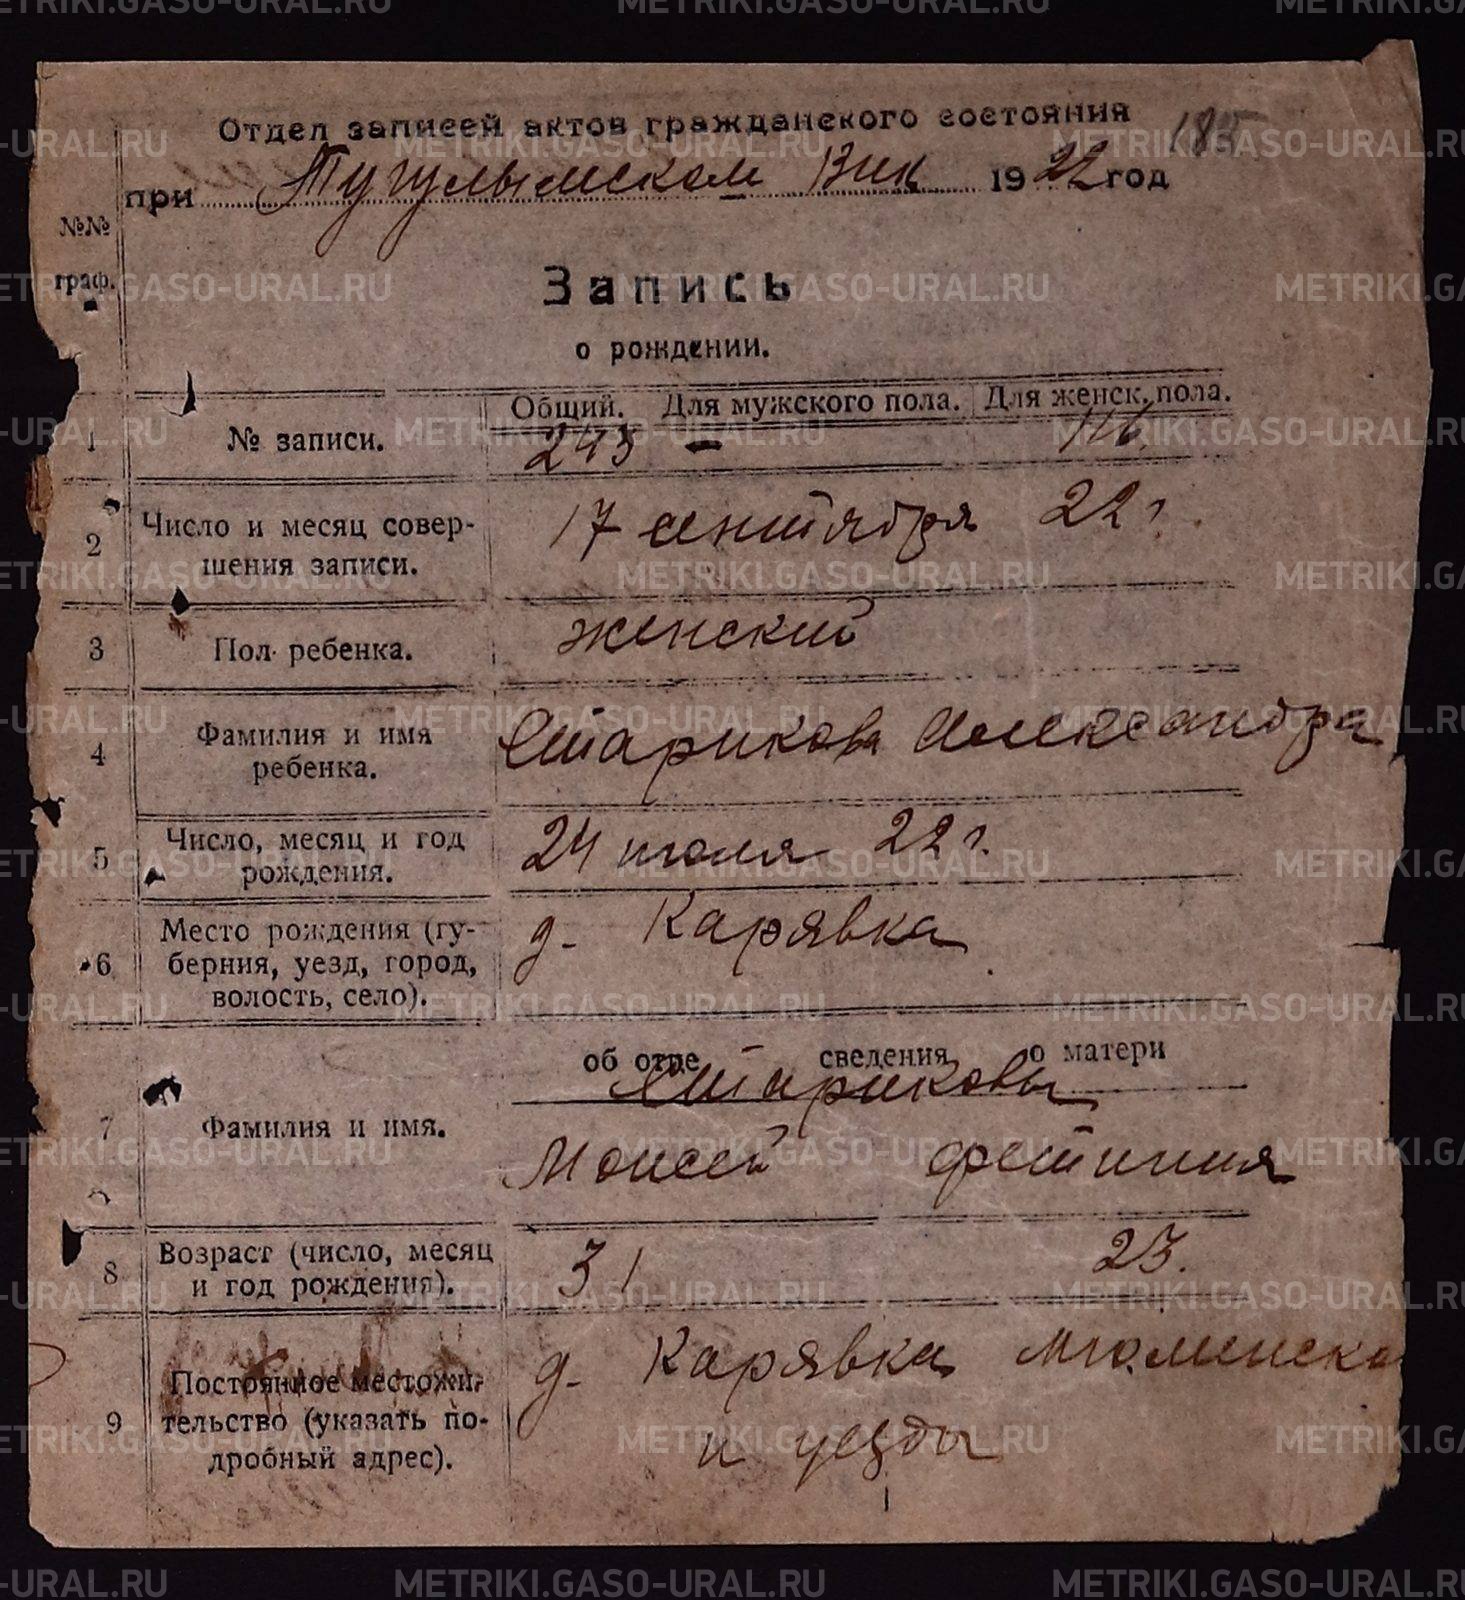 Отдел записей актов гражданского состояния
при Тугулымском Вик 1922 год
№№ граф.
Запись
о рождении.
Общий. Для мужского пола. Для женск. пола.
1 № записи. 243 - 116.
2 Число и месяц совер-
шения записи. 17 сентября 22 г.
3 Пол ребенка. женский
4 Фамилия и имя
ребенка. Старикова Александра
5 Число, месяц и год
рождения. 24 июля 22 г.
6 Место рождения (гу-
берния, уезд, город,
волость, село). д. Карявка
об отце сведения о матери
Стариковы
7 Фамилия и имя. Моисей Фетиния
8 Возраст (число, месяц
и год рождения). 31 23.
9 Постоянное местожи-
тельство (указать по-
дробный адрес). д. Карявка
METRIKI.GASO-URAL.RU